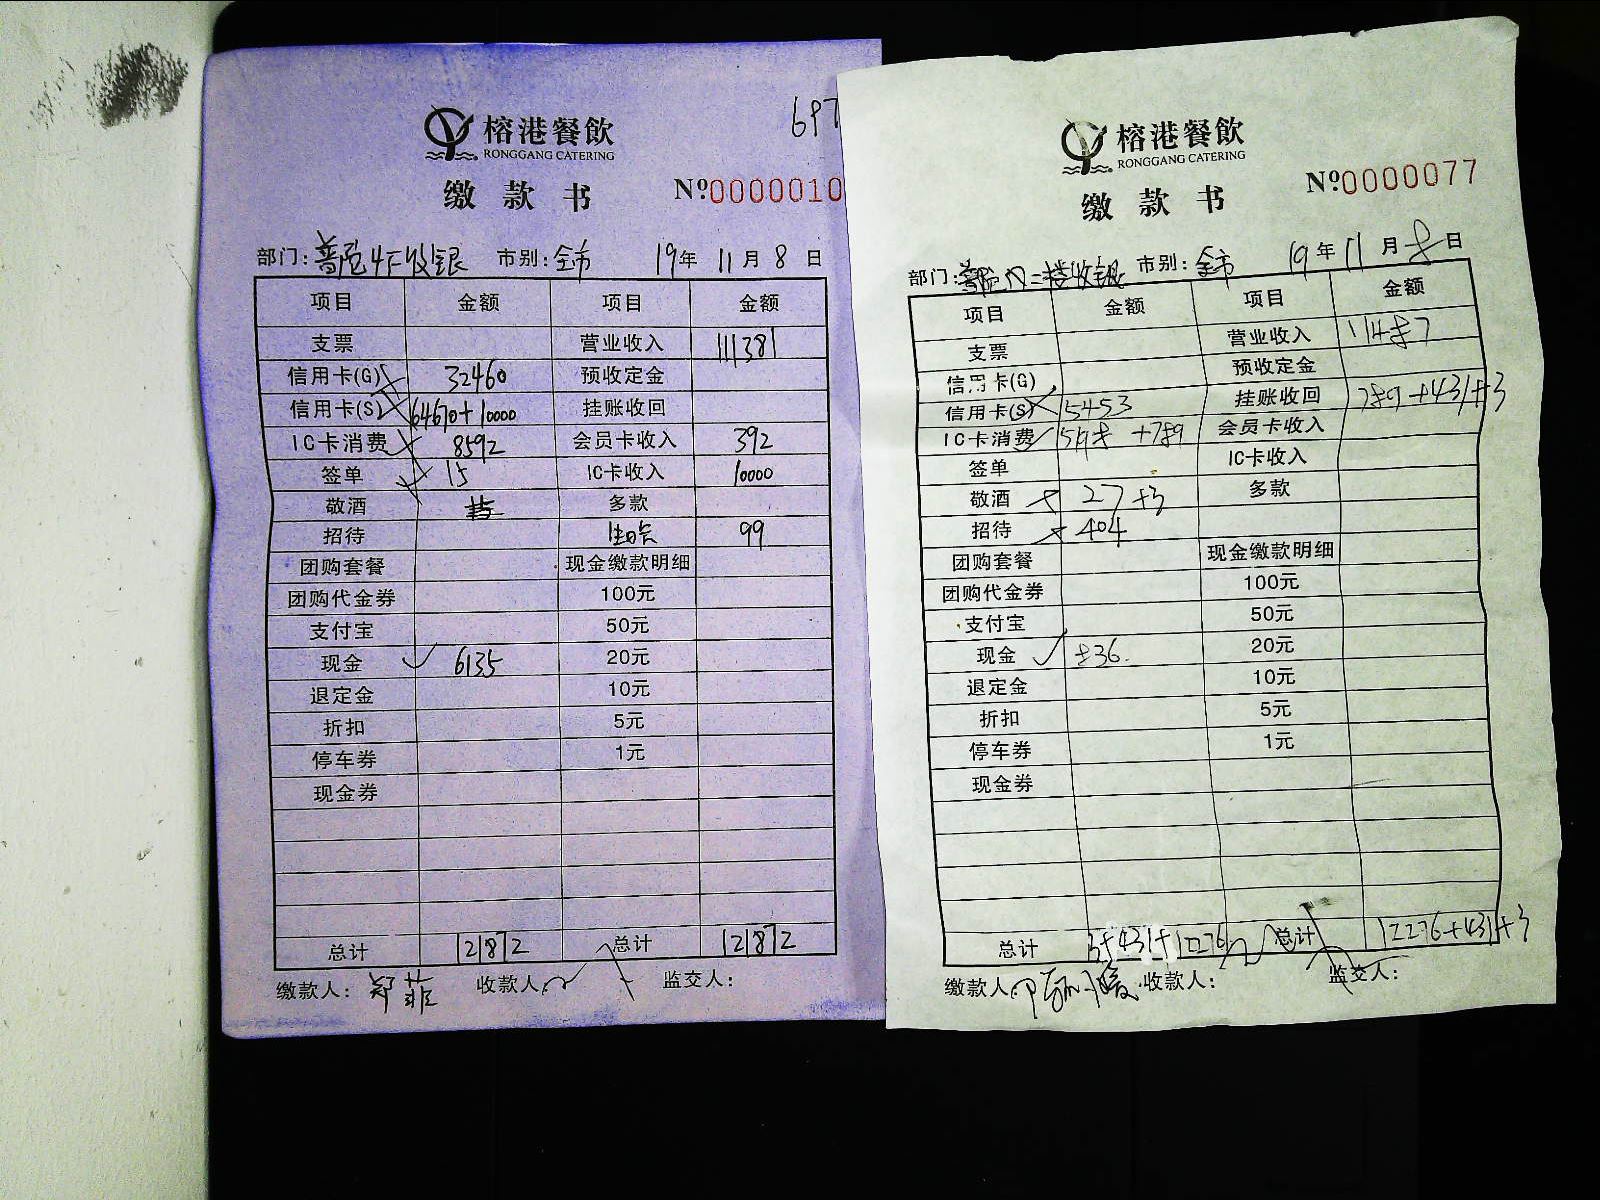 697
榕港餐飲
RONGGANG CATERING
缴款书 Nº0000010
部门: 4F收银 市别: 全市 19年 11月 8日
项目 金额 项目 金额
支票 营业收入 111381
信用卡(G) 32460 预收定金
信用卡(S) 64670+10000 挂账收回
IC卡消费 8592 会员卡收入 392
签单 15 IC卡收入 10000
敬酒 多款
招待 99
团购套餐 现金缴款明细
团购代金券 100元
支付宝 50元
现金 6135 20元
退定金 10元
折扣 5元
停车券 1元
现金券
总计 121872 总计 121872
缴款人: 郑菲 收款人: 监交人:
榕港餐飲
RONGGANG CATERING
缴款书 Nº0000077
部门: 二楼收银 市别: 全市 19年 11月 8日
项目 金额 项目 金额
支票 营业收入 11487
信用卡(G) 预收定金
信用卡(S) 5453 挂账收回 789+431+3
IC卡消费 5198+789 会员卡收入
签单 IC卡收入
敬酒 27+3 多款
招待 404
团购套餐 现金缴款明细
团购代金券 100元
支付宝 50元
现金 836 20元
退定金 10元
折扣 5元
停车券 1元
现金券
总计 3+431+12276 总计 12276+431+3
缴款人 收款人: 监交人: